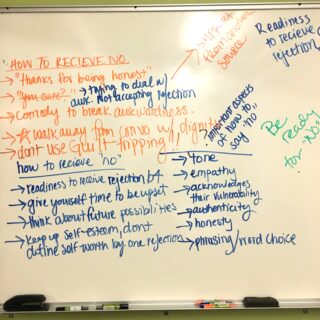 HOW TO RECIEVE NO
→ "thanks for being honest"
→ "you sure?" → trying to deal w/
awk. Not accepting rejection
→ comedy to break awkwardness.
→ Walk away from convo w/ dignity
→ dont use Guilt-tripping!!!
source
Readiness
to recieve
rejection
Be ready
for "NO"
important aspects
of how to
say "no"
how to recieve "no"
→ readiness to receive rejection b4
→ give yourself time to be upset
→ think about future possibilities
→ keep up self-esteem, dont
define self-worth by one rejection
→ tone
→ empathy
→ acknowledges
their vulnerability
→ authenticity
→ honesty
→ phrasing/word choice